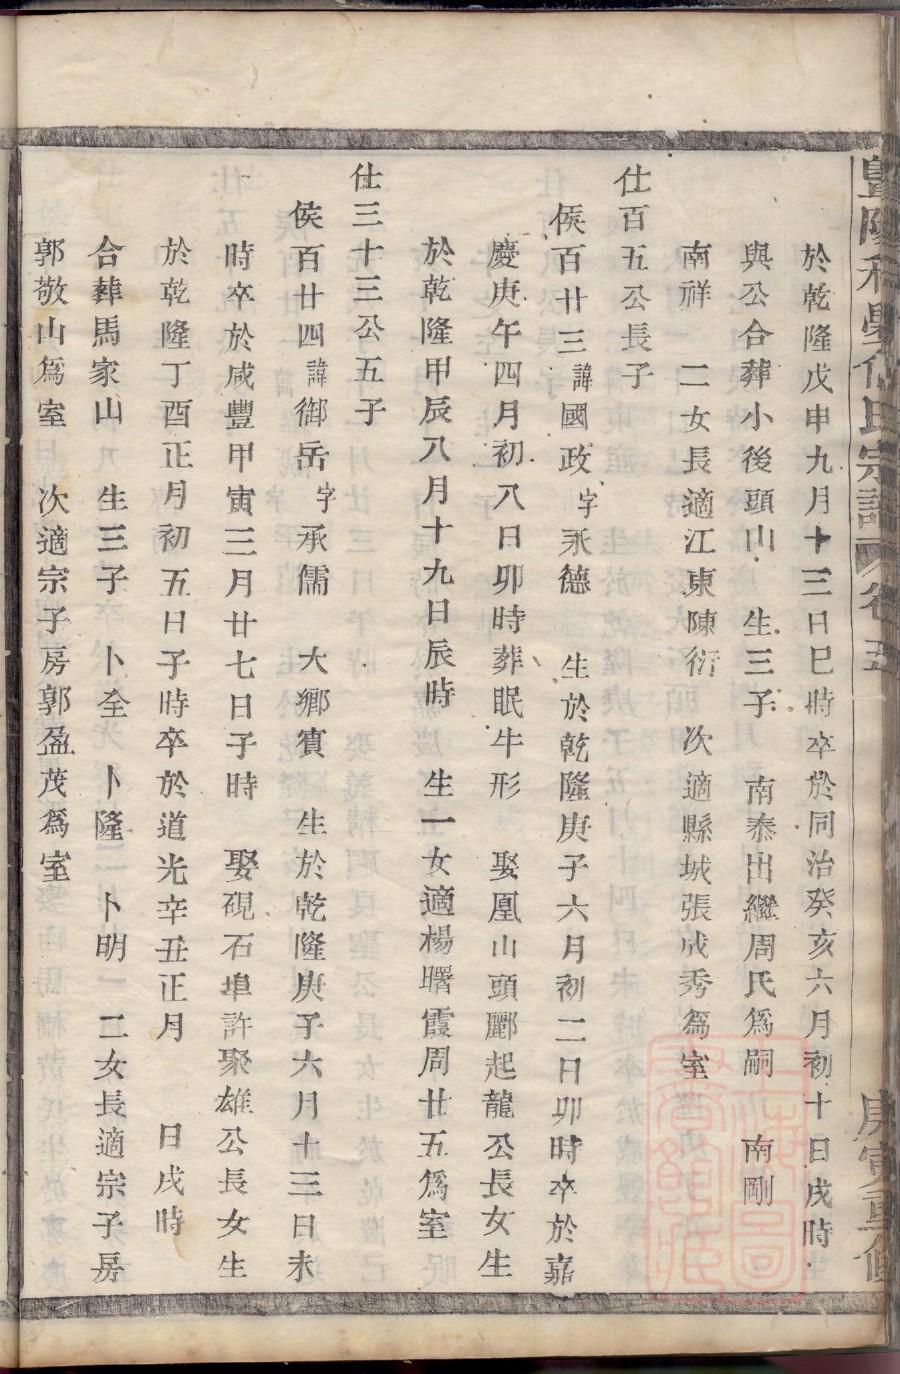 暨陽和學
氏宗譜
卷五
庚寅重修
於乾隆戊申九月十三日巳時卒於同治癸亥六月初十日戌時
與公合葬小後頭山 生三子 南泰出繼周氏爲嗣 南剛
南祥 二女長適江東陳衍 次適縣城張成秀爲室
仕百五公長子
侯百廿三諱國政字承德 生於乾隆庚子六月初二日卯時卒於嘉
慶庚午四月初八日卯時葬眠牛形 娶凰山頭酈起龍公長女生
於乾隆甲辰八月十九日辰時 生一女適楊曙霞周廿五爲室
仕三十三公五子
侯百廿四諱御岳字承儒 大鄉賓 生於乾隆庚子六月十三日未
時卒於咸豐甲寅三月廿七日子時 娶硯石埠許聚雄公長女生
於乾隆丁酉正月初五日子時卒於道光辛丑正月 日戌時
合葬馬家山 生三子 卜全 卜隆 卜明 二女長適宗子房
郭敬山爲室 次適宗子房郭盈茂爲室